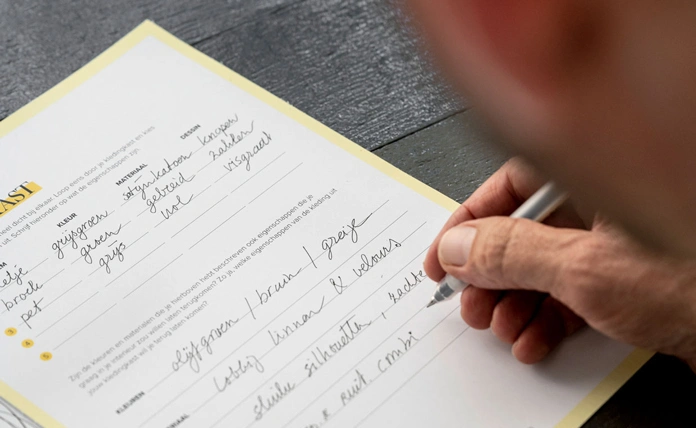 KAST
heel dicht bij elkaar. Loop eens door je kledingkast en kies
uit. Schrijf hieronder op wat de eigenschappen zijn.
KLEUR MATERIAAL DESSIN
grijsgroen satijnkatoen knopen
broek groen gebreid
pet grijs wol visgraat
3
4
5
Zijn de kleuren en materialen die je hierboven hebt beschreven ook eigenschappen die je
graag in je interieur zou willen laten terugkomen? Zo ja, welke eigenschappen van de kleding uit
jouw kledingkast wil je terug laten komen?
KLEUREN olijfgroen / bruin / greije
linnen & velours
silhouetten, zachte
ruit combi